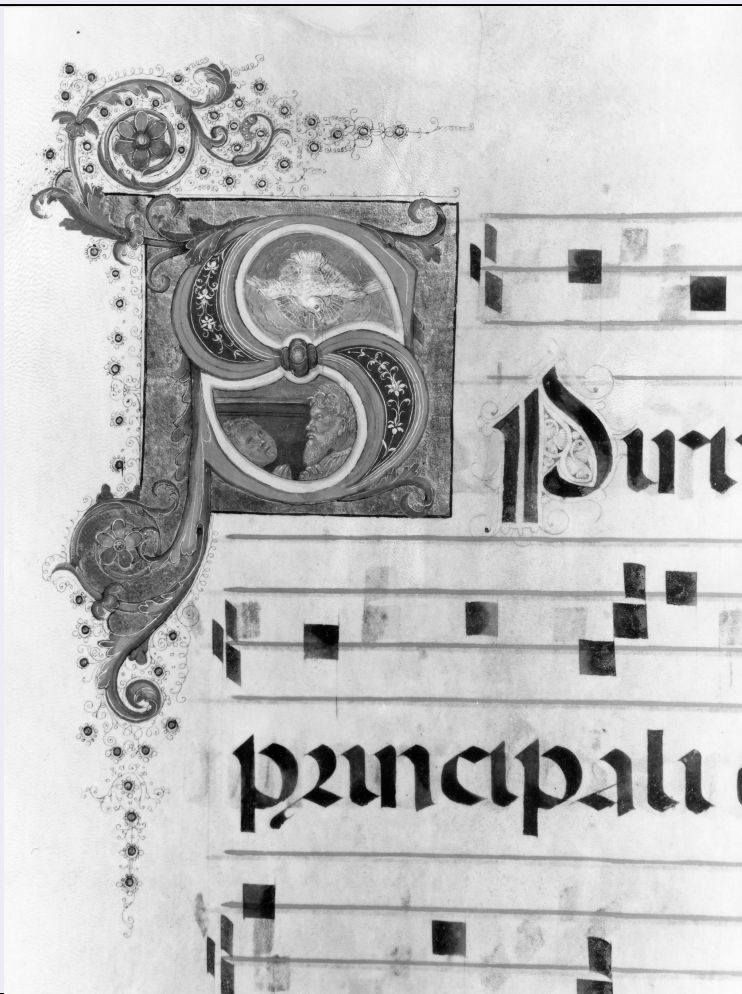 SPiri
principali